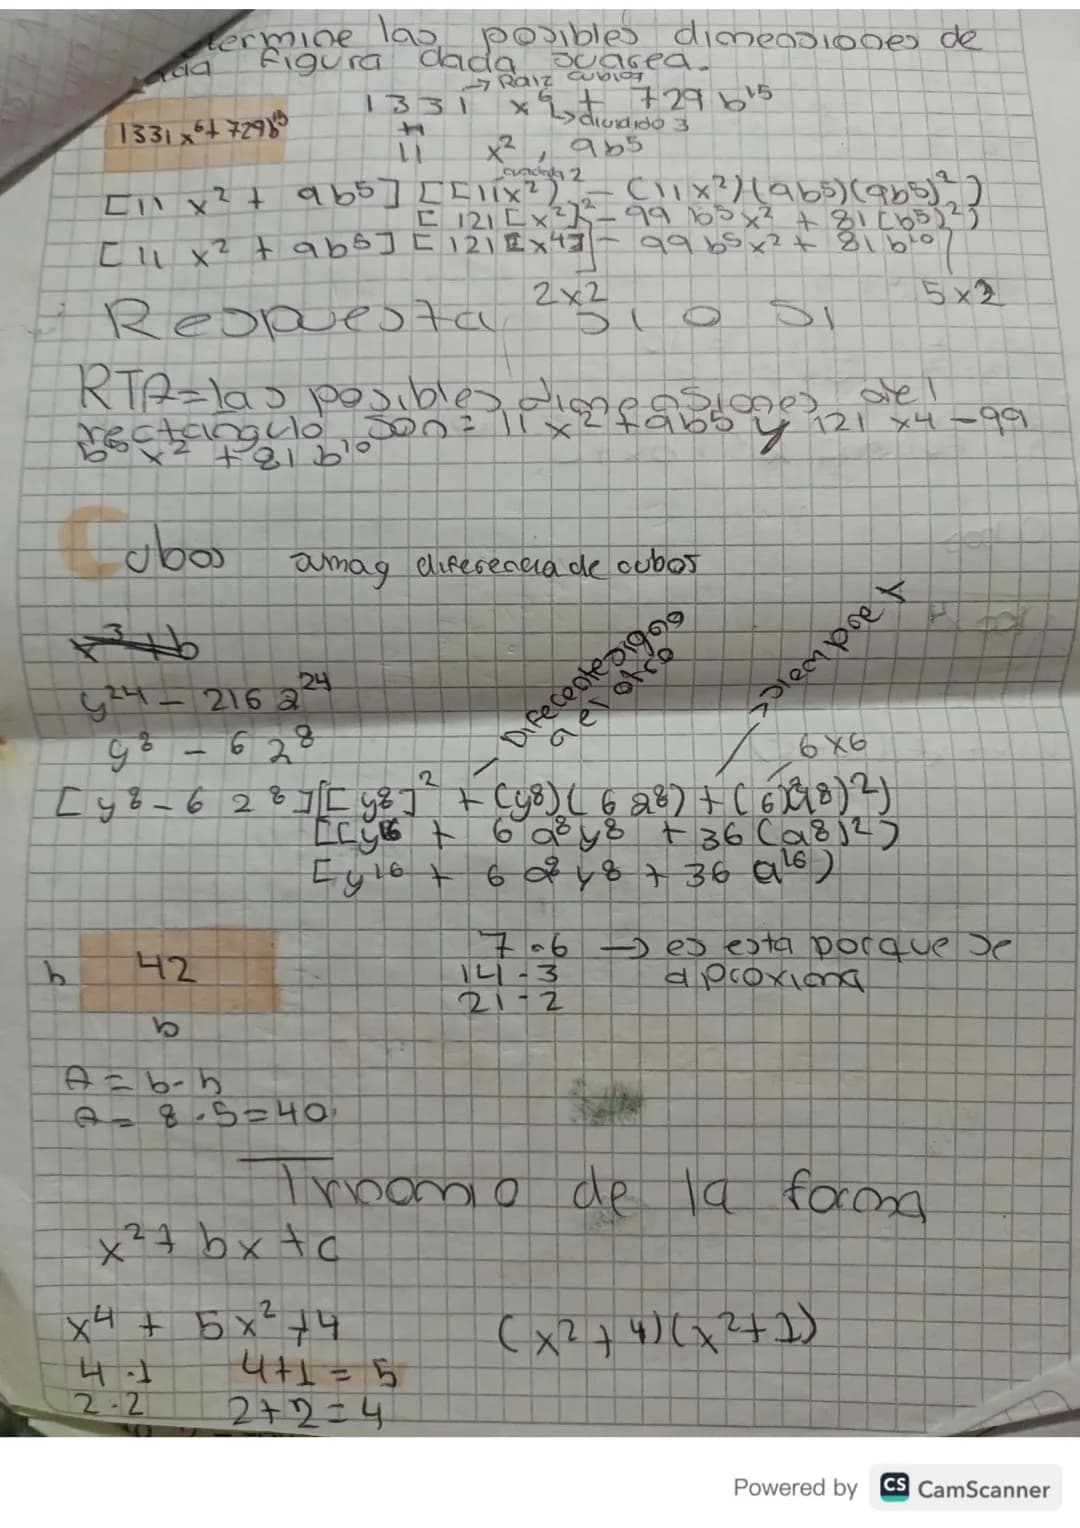 termine las posibles dimensiones de
ada figura dada su area.
→ Raiz cubica
1331x⁶+729b¹⁵
1331 x⁶ + 729 b¹⁵
↳ dividido 3
11 x², 9b5
cuadrado 2
[11 x² + 9b⁵] [[11x²)² - (11x²)(9b5)(9b5)²]
[121[x²]² - 99 b⁵x² + 81(b⁵)²]
[11 x² + 9b⁵] [121[x4] - 99b⁵x² + 81b¹⁰]
2x2
5x2
Respuesta si o si
RTA=las posibles dimensiones del
rectangulo son= 11x²+9b5 y 121 x4 -99
b⁵x² +81 b¹⁰
Cubos amag diferencia de cubos
x³+b
y²⁴ - 216 a²⁴
y⁸ - 6 a⁸
Diferente signo
a el otro
→siempre y
6x6
[y⁸-6 a⁸][[y8]² + (y8)(6a8)+(6)(a8)²)
[[y16 + 6 a⁸y8 + 36(a8)²)
[y¹⁶ + 6 a⁸y8 + 36 a¹⁶)
7·6 → es esta porque se
h 42
14-3 aproxima
21-2
b
A = b·h
A= 8·5=40
Trinomio de la forma
x²+bx+c
x⁴ + 5x²+4 (x²+4)(x²+1)
4·1 4+1=5
2·2 2+2=4
Powered by CS CamScanner